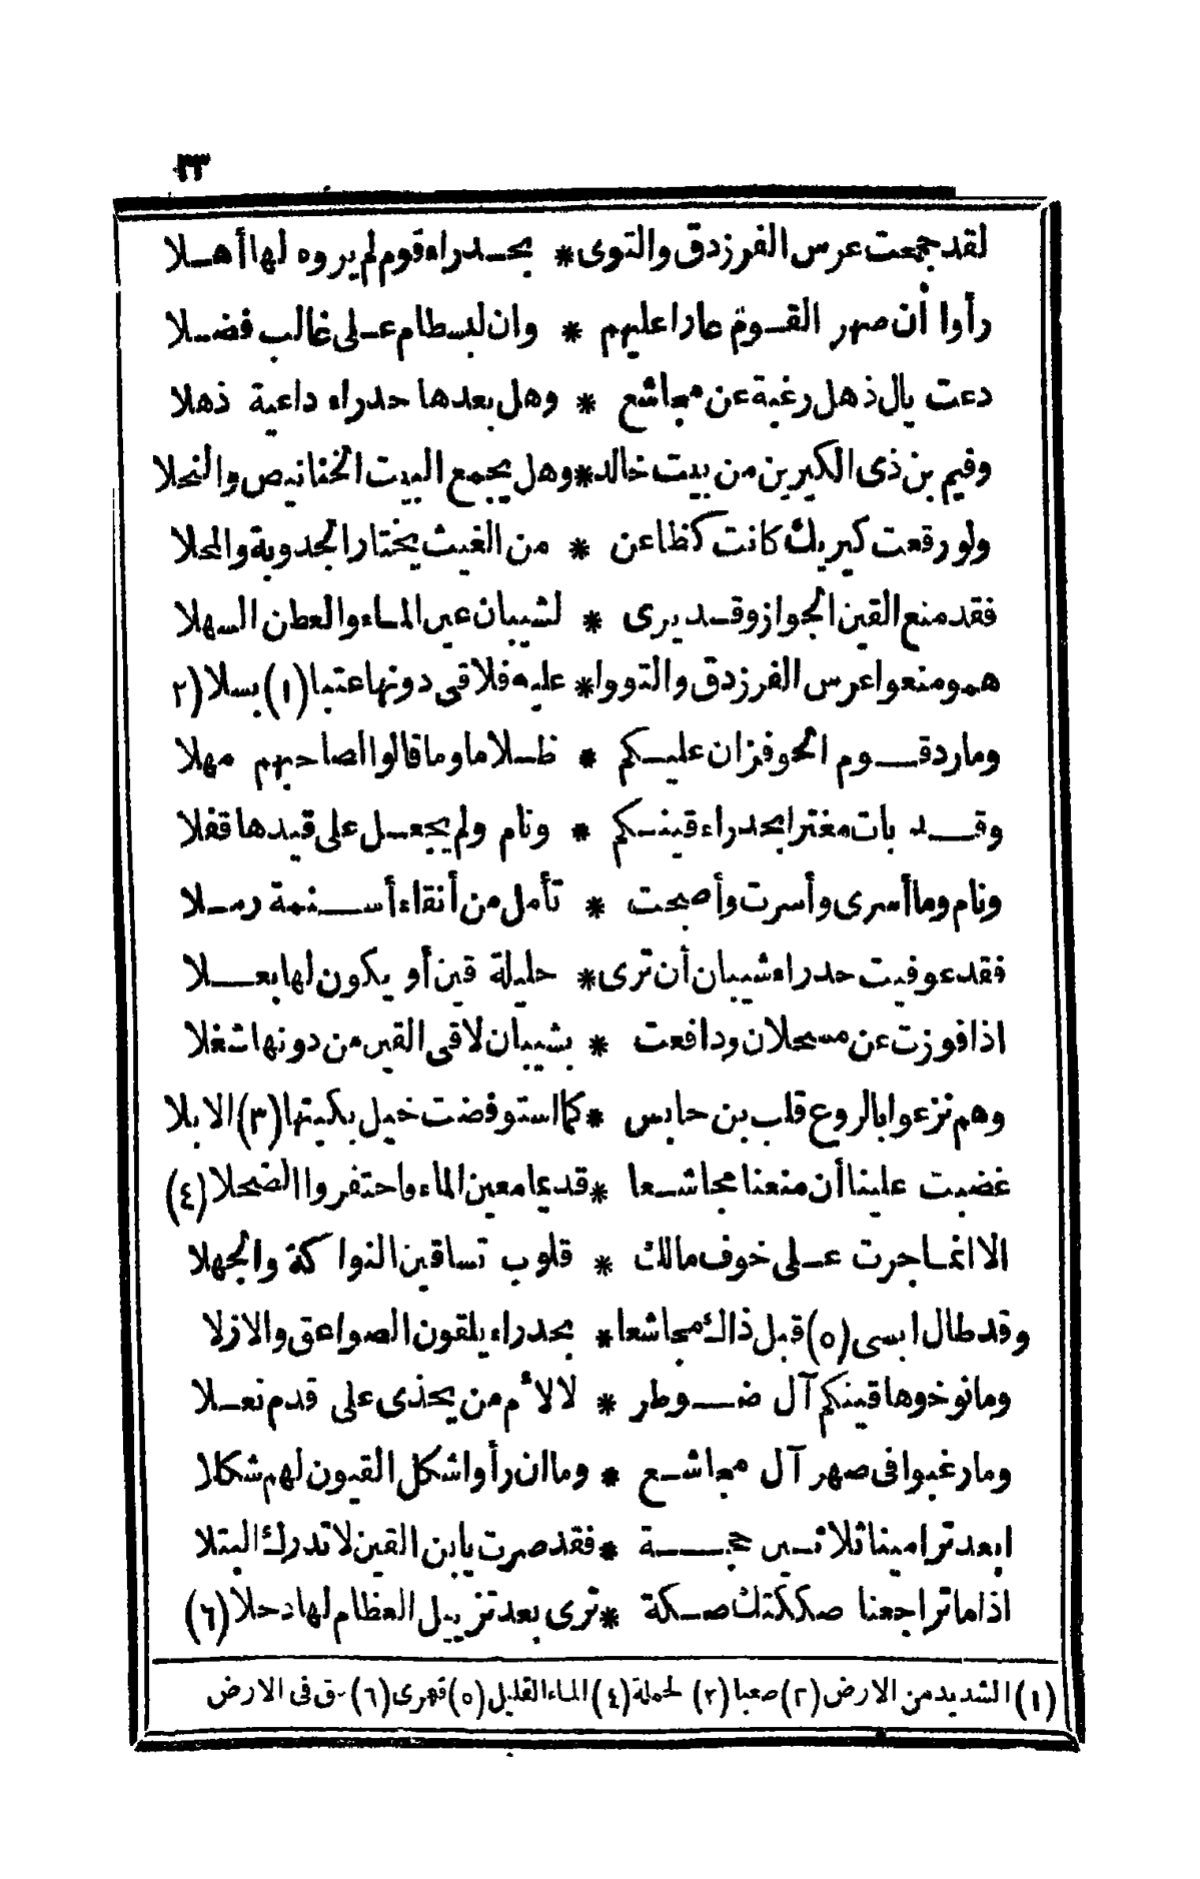 ٢٣
لقد جمعت عرس الفرزدق والتوى * بحدراء قوم لم يروه لها أهلا
رأوا أن صهر القوم عارا عليهم * وان لبسطام على غالب فضلا
دعت يال ذهل رغبة عن مجاشع * وهل بعدها حدراء داعية ذهلا
وفيم بن ذى الكيرين من بيت خالد * وهل يجمع البيت الخنانيص والنحلا
ولو رقعت كيريك كانت كظاعن * من الغيث يختار الجدوبة والمحلا
فقد منع القين الجواز وقد يرى * لشيبان عين الماء والعطن السهلا
همو منعوا عرس الفرزدق والتووا * عليه فلاقى دونها عتبا (١) بسلا (٢
وما رد قوم الحوفزان عليكم * ظلاما وما قالوا لصاحبهم مهلا
وقد بات مغترا بحدراء قينكم * ونام ولم يجعل على قيدها قفلا
ونام وما أسرى وأسرت وأصبحت * تأمل من أنقاء أسنمة رملا
فقد عوفيت حدراء شيبان أن ترى * حليلة قين أو يكون لها بعلا
اذا فوزت عن مسحلان ودافعت * بشيبان لاقى القين من دونها شغلا
وهم نزعوا بالروع قلب بن حابس * كما استوفضت خيل بكيتها (٣) الابلا
غضبت علينا أن منعنا مجاشعا * قديما معين الماء واحتفروا الضحلا (٤)
الا انما جرت على خوف مالك * قلوب تساقين النواكة والجهلا
وقد طال ابسى (٥) قبل ذاك مجاشعا * بحدراء يلقون الصواعق والازلا
وما نوخوها قينكم آل ضوطر * لالأم من يحذى على قدم نعلا
وما رغبوا فى صهر آل مجاشع * وما ان رأوا شكل القيون لهم شكلا
ابعد ترامينا ثلاثين حجة * فقد صرت يا بن القين لا تدرك البتلا
اذا ما تراجعنا صككتك صكة * ترى بعد تزييل العظام لها دحلا (٦)
(١) الشديد من الارض (٢) صعبا (٣) لحملة (٤) الماء القليل (٥) قهرى (٦) شق فى الارض